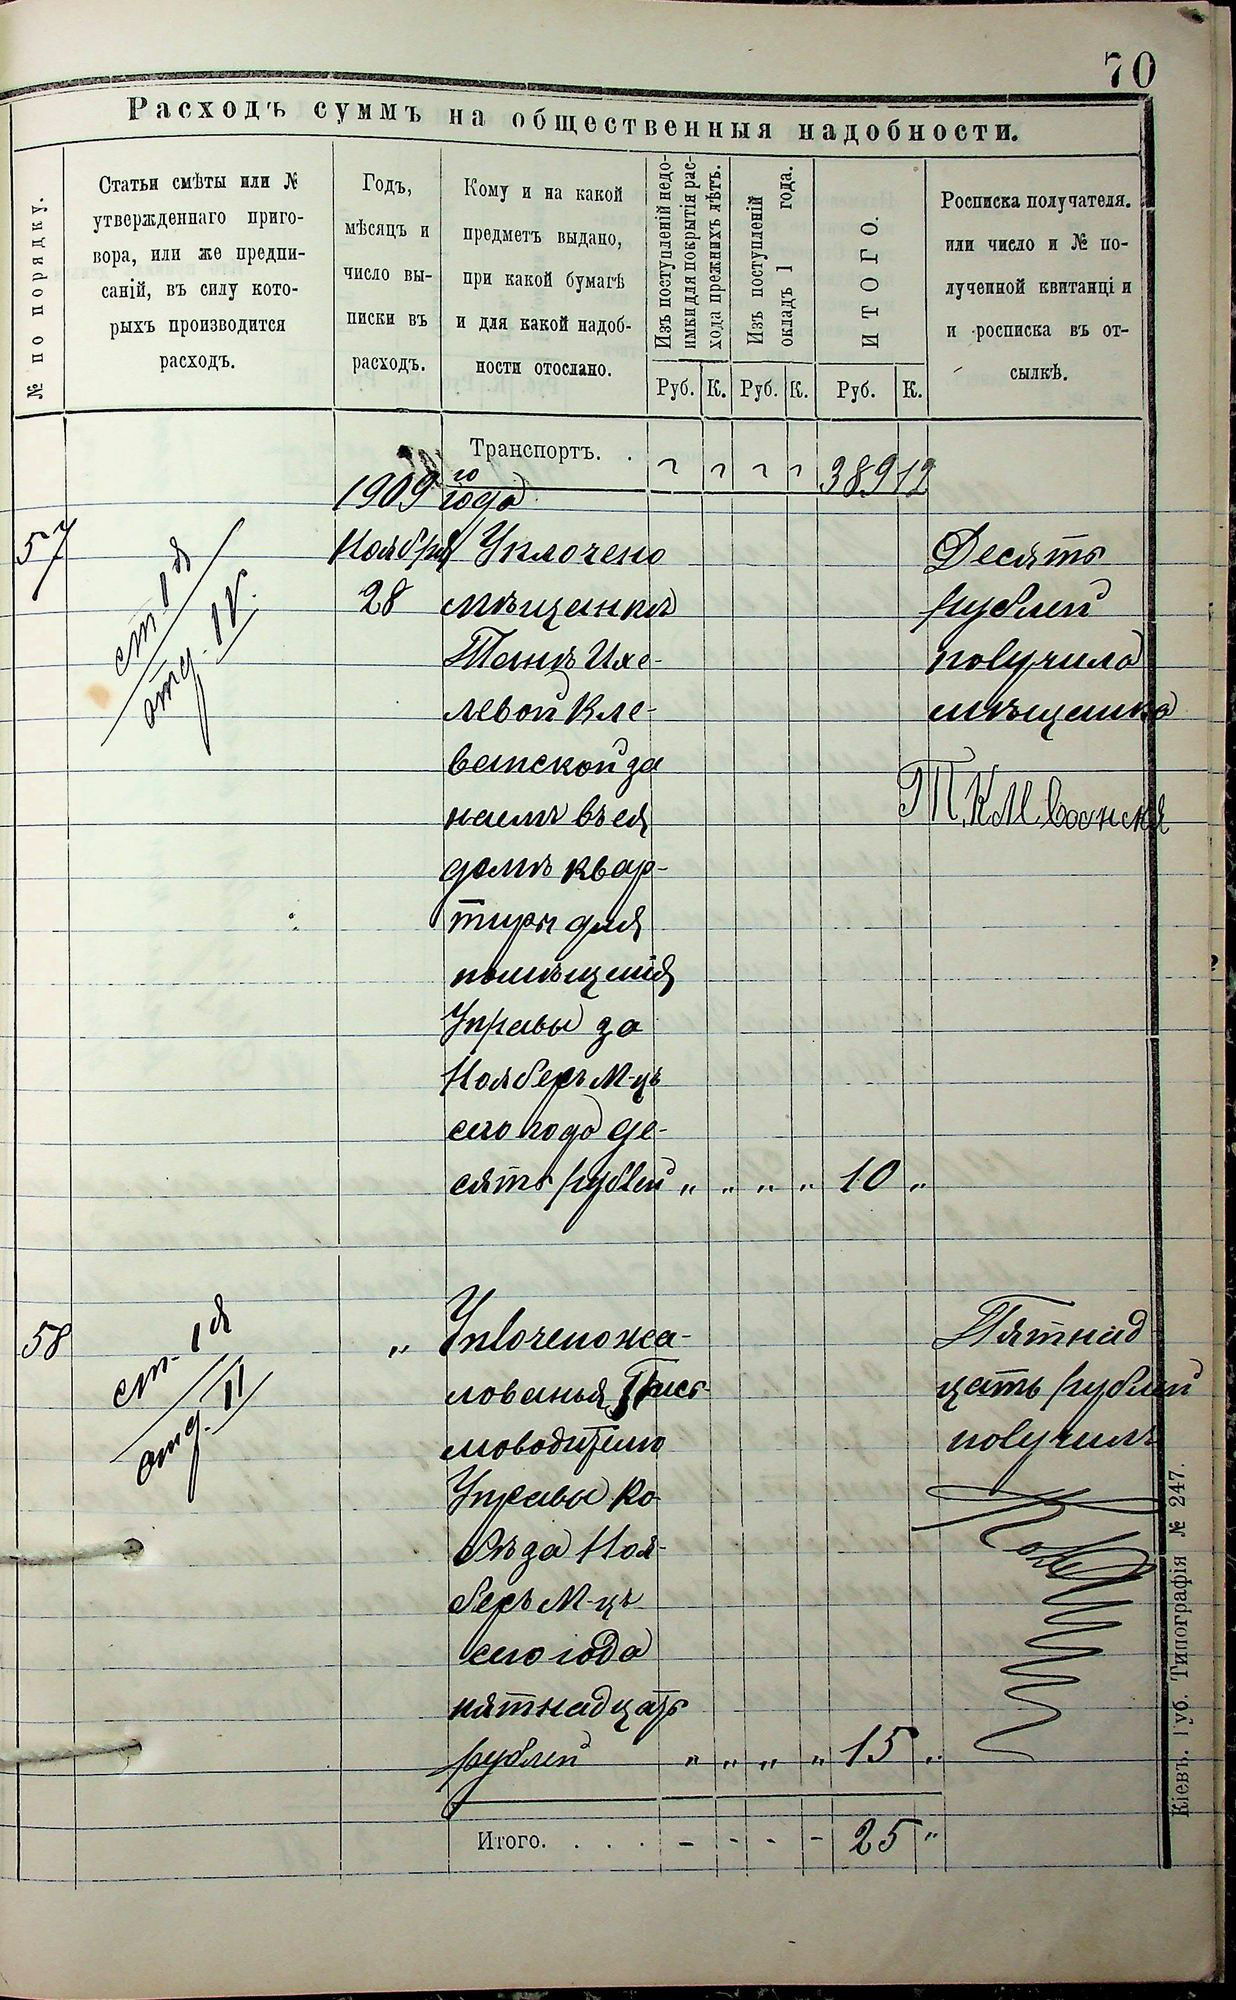 70
Расходъ суммъ на общественныя надобности.
№ по порядку.
Статьи смѣты или №
утвержденнаго приго-
вора, или же предпи-
саній, въ силу кото-
рыхъ производится
расходъ.
Годъ,
мѣсяцъ и
число вы-
писки въ
расходъ.
Кому и на какой
предметъ выдано,
при какой бумагѣ
и для какой надоб-
ности отослано.
Изъ поступленій недо-
имки для покрытія рас-
хода прежнихъ лѣтъ.
Изъ поступленій
окладъ 1 года.
ИТОГО.
Росписка получателя.
или число и № по-
лученной квитанці и
и росписка въ от-
сылкѣ.
Руб. К. Руб. К. Руб. К.
Транспортъ. . 389 12
1909 го года
57
ст. 1 я
отд. IV.
Ноября
28
Уплочено
мѣщанкѣ
левой Кле-
ванской за
наемъ въ ея
домѣ квар-
тиры для
помѣщенія
Управы за
Ноябрь М-цъ
сего года де-
сять рублей „ „ „ „ 10 „
Десять
рублей
получила
мѣщанка
58
ст. 1 я
отд. II
„
Уплочено жа-
лованья Пись-
моводителю
Управы Ко-
за Ноя-
брь М-цъ
сего года
пятнадцать
рублей „ „ „ „ 15 „
Пятнад
цать рублей
получилъ
Итого. . . . - - - - 25 „
Кіевъ. Губ. Типографія № 247.